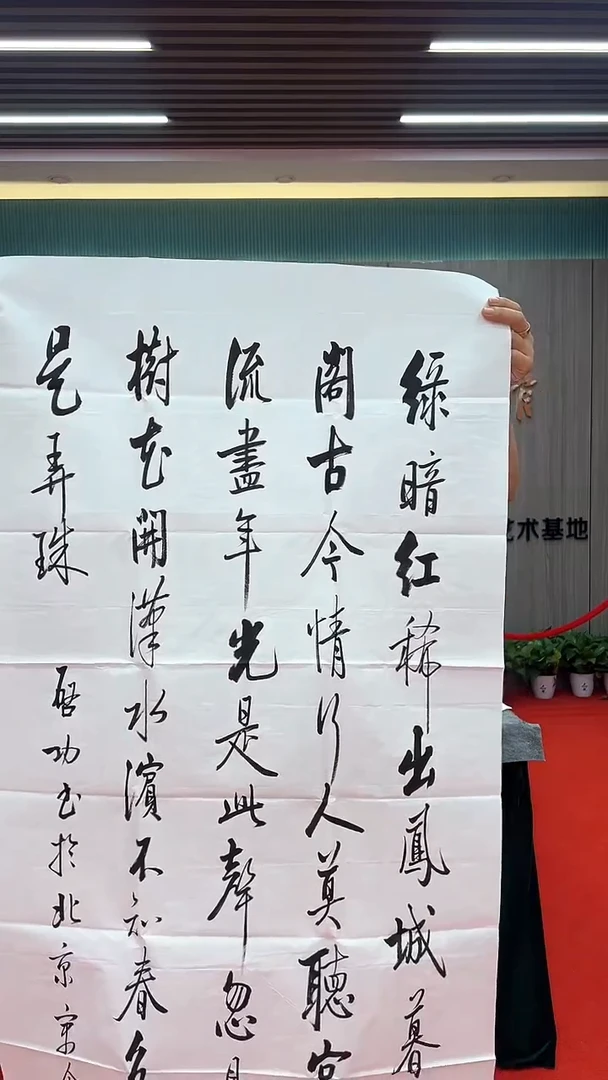 綠暗紅稀出鳳城暮
閣古今情行人莫聽宮
流盡年光是此聲忽
樹花開漢水濱不知春色
是弄珠
啓功书於北京
艺术基地